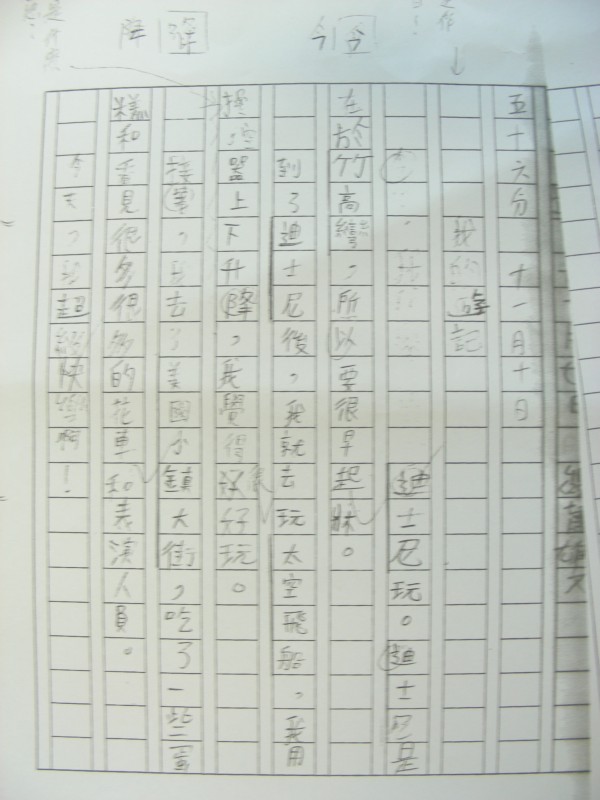 五十六分 十一月十日
我的遊記
迪士尼玩。迪士尼是
在於竹高灣，所以要很早起牀。
到了迪士尼後，我就去玩太空飛船，我用
器上下升降，我覺得好玩。
接著，我去了美國小鎮大街，吃了一些蛋
糕和看見很多很多的花車和表演人員。
今天，我超級快樂啊！